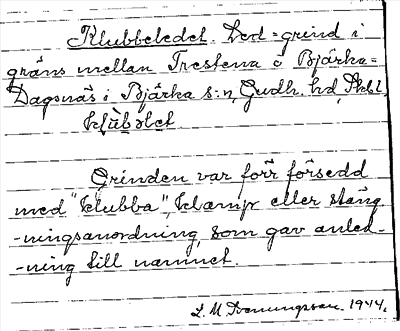 Klubbeledet. Led = grind i
gräns mellan Trestena o Bjärka=
Dagsnäs i Bjärka s:n, Gudh. hd, Skbl.
klùbəlet
Grinden var förr försedd
med "klubba", klamp eller stäng
-ningsanordning, som gav anled-
-ning till namnet.
L. M. 1944.